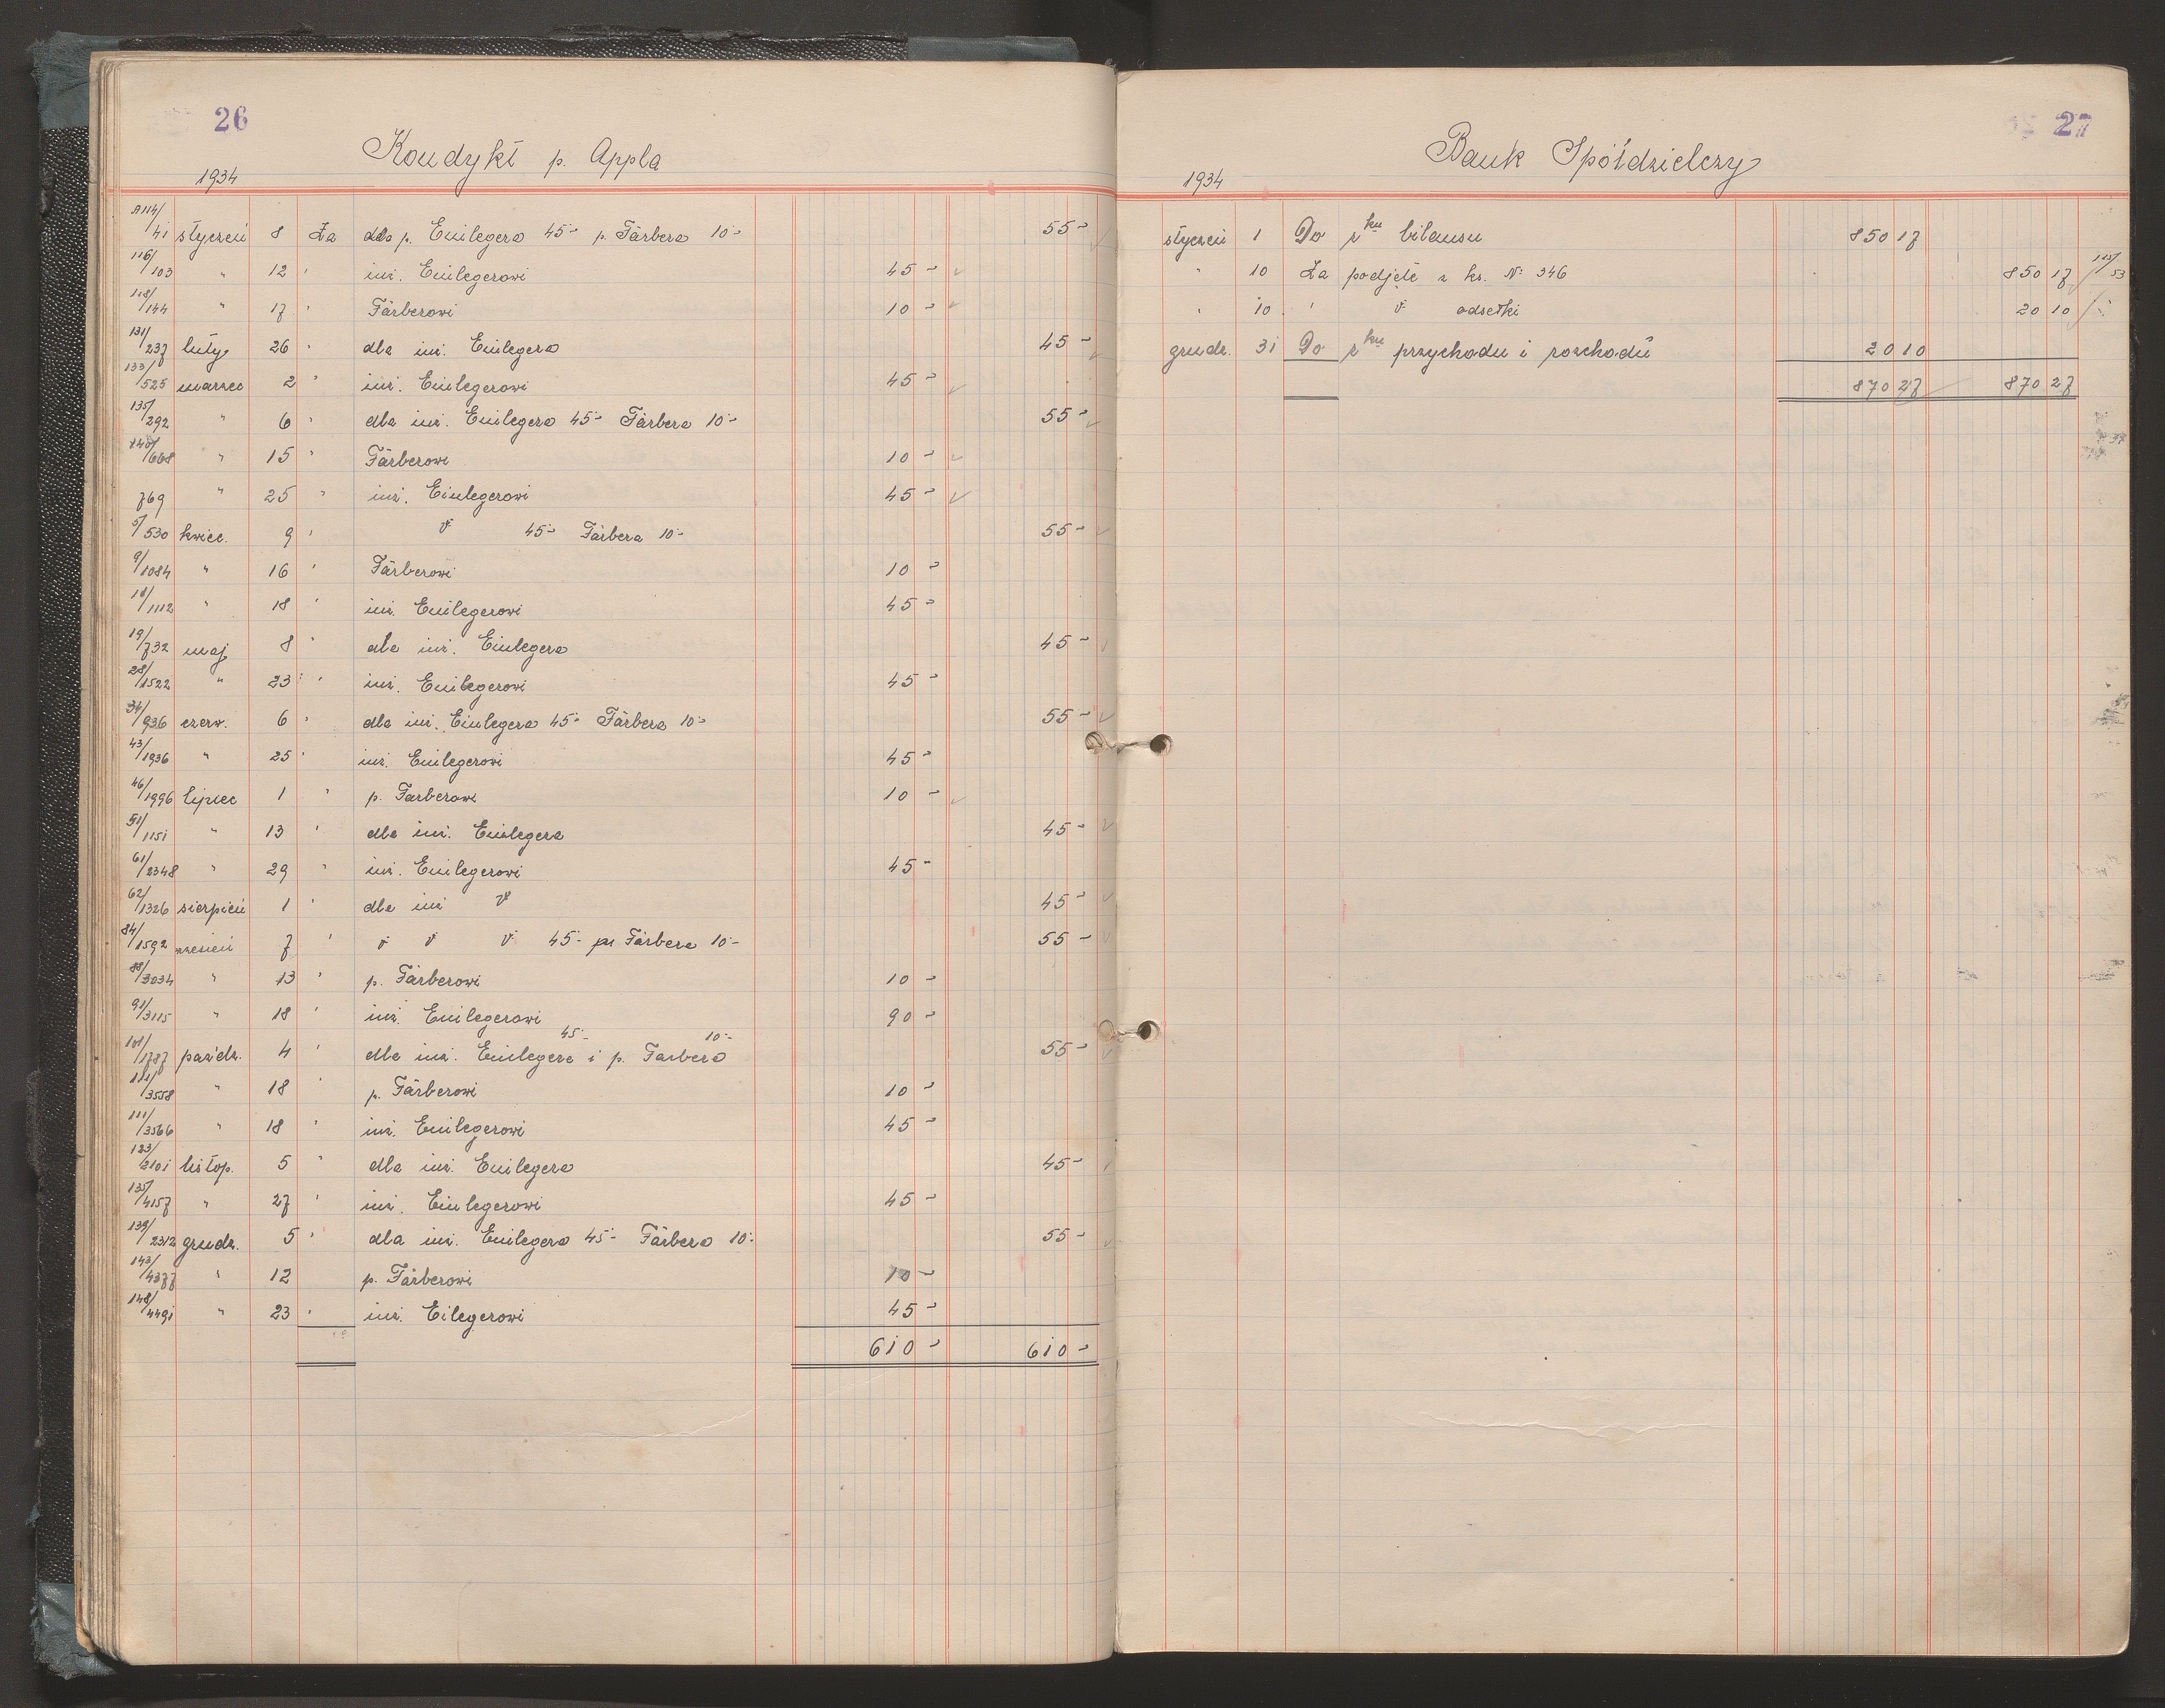 26
Kondykt p. Appla
1934
A114/41 styczeń 8 Za dla p. Einlegera 45- p. Färbera 10- 55-
116/103 " 12 " inż. Einlegerowi 45-
118/144 " 17 " Färberowi 10-
131/237 luty 26 " dla inż. Einlegera 45-
133/525 marzec 2 " inż. Einlegerowi 45-
135/292 " 6 " dla inż. Einlegera 45- Färbera 10- 55-
140/668 " 15 " Färberowi 10-
769 " 25 " inż. Einlegerowi 45-
5/530 kwiec. 9 " " 45- Färbera 10- 55-
9/1084 " 16 " Färberowi 10-
10/1112 " 18 " inż. Einlegerowi 45-
19/732 maj 8 " dla inż. Einlegera 45-
28/1522 " 23 " inż. Einlegerowi 45-
34/936 czerw. 6 " dla inż. Einlegera 45- Färbera 10- 55-
43/1936 " 25 " inż. Einlegerowi 45-
46/1996 lipiec 1 " p. Färberowi 10-
51/1151 " 13 " dla inż. Einlegera 45-
61/2348 " 29 " inż. Einlegerowi 45-
62/1326 sierpień 1 " dla inż " 45-
84/1592 wrzesień 7 " " " " 45- p. Färbera 10- 55-
88/3034 " 13 " p. Färberowi 10-
91/3115 " 18 " inż. Einlegerowi 90-
45- 10-
101/1787 paźdz. 4 " dla inż. Einlegera i p. Farbera 55-
111/3558 " 18 " p. Färberowi 10-
111/3566 " 18 " inż. Einlegerowi 45-
123/2101 listop. 5 " dla inż. Einlegera 45-
135/4157 " 27 " inż. Einlegerowi 45-
139/2312 grudz. 5 " dla inż. Einlegera 45- Färbera 10- 55-
143/4377 " 12 p. Färberowi 10-
148/4491 " 23 " inż. Eilegerowi 45-
610- 610-
27
Bank Spółdzielczy
1934
styczeń 1 Do rku bilansu 850 17
" 10 Za podjęte z ks. No 346 850 17 115/53
" 10 " " odsetki 20 10
grudz. 31 Do rku przychodu i rozchodu 20 10
870 27 870 27